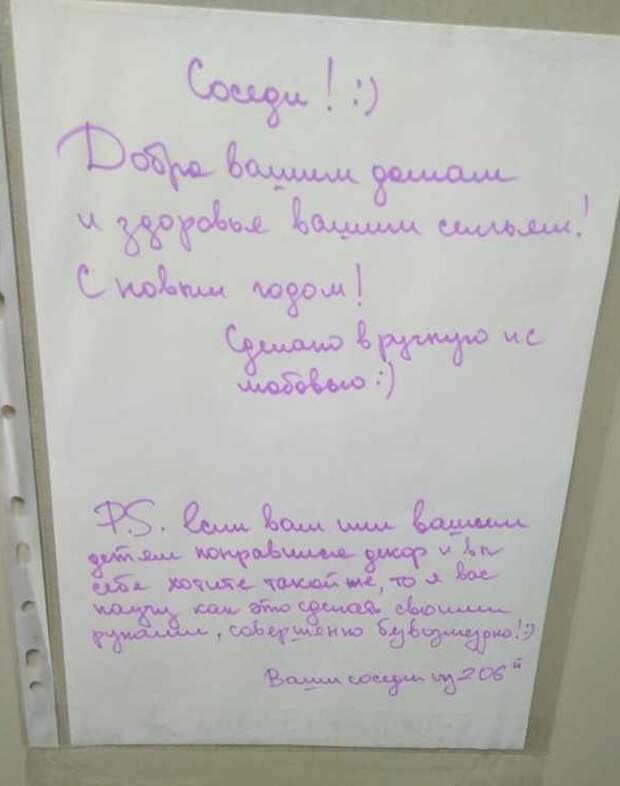 Соседи! :)
Добра вашим домам
и здоровья вашим семьям!
С новым годом!
Сделано в ручную и с
любовью :)
P.S. Если вам или вашим
детям понравился декор и вы
себе хотите такой же, то я вас
научу как это сделать своими
руками, совершенно безвозмездно! :)
Ваши соседи из 206й